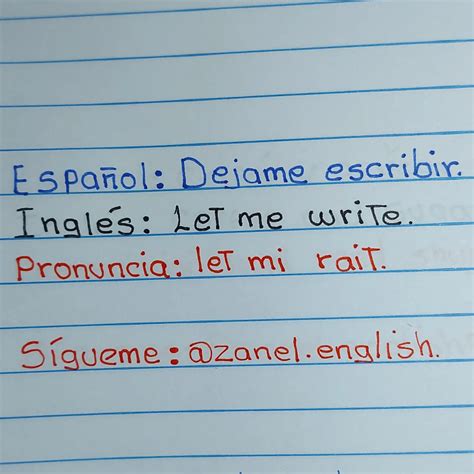 Español: Dejame escribir.
Inglés: Let me write.
Pronuncia: let mi rait.
Sígueme: @zanel.english.